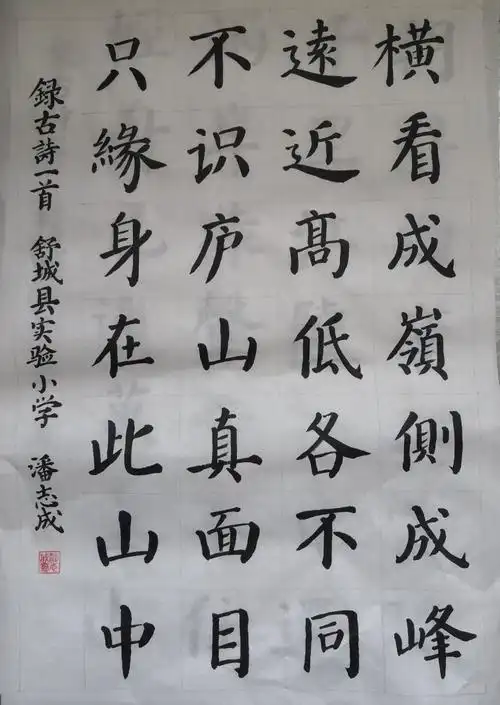 橫看成嶺側成峰
遠近髙低各不同
不识庐山真面目
只緣身在此山中
録古詩一首 舒城县实验小学 潘志成